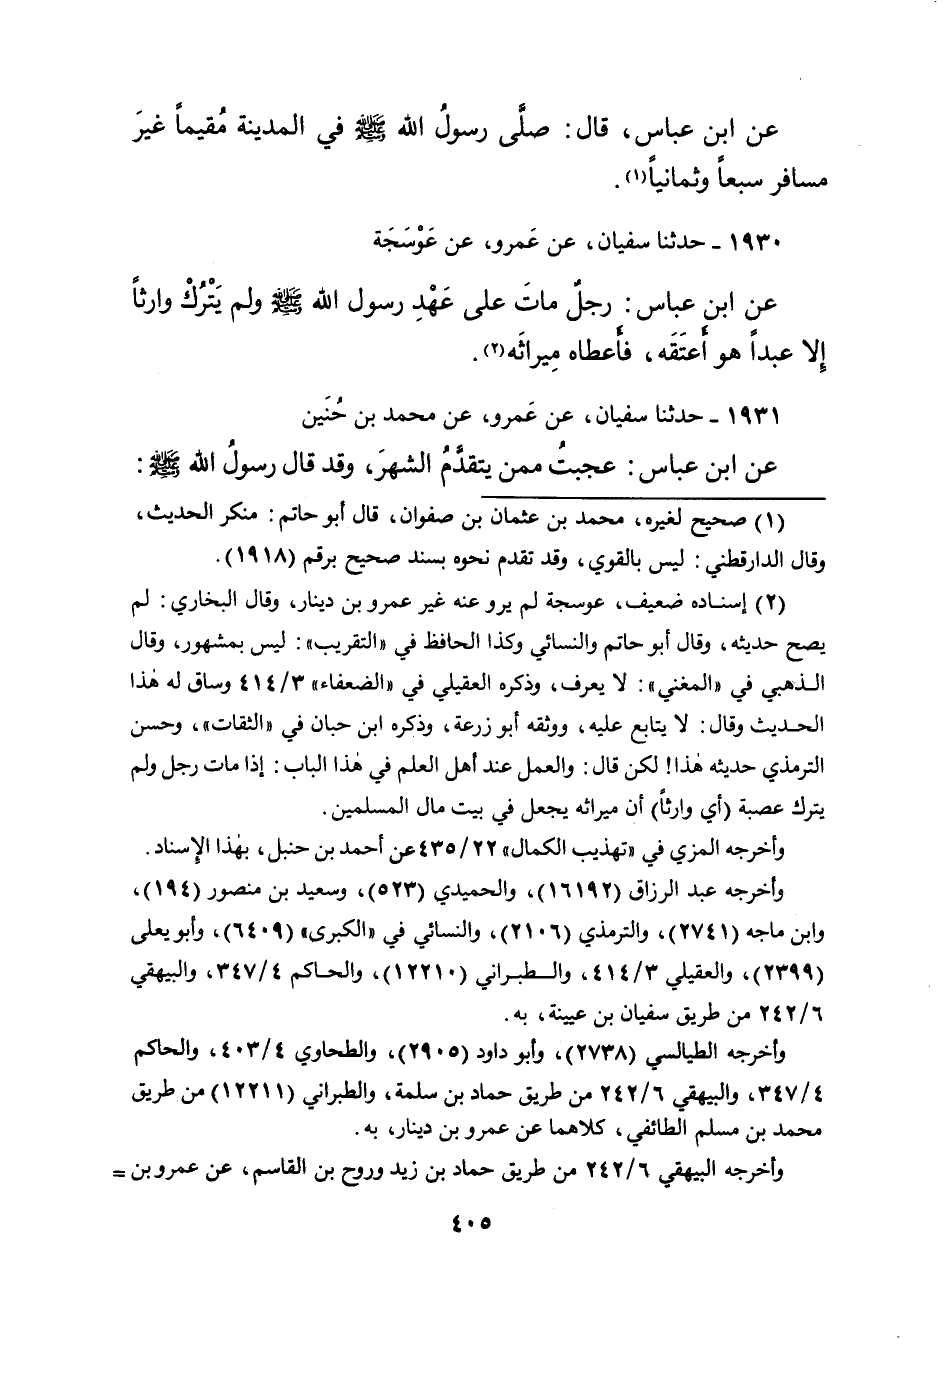 عن ابن عباس، قال: صلَّى رسولُ الله ﷺ في المدينة مُقيماً غيرَ
مسافر سبعاً وثمانياً(١).
١٩٣٠ ـ حدثنا سفيان، عن عَمرو، عن عَوْسَجَة
عن ابنِ عباس: رجلٌ ماتَ على عَهْدِ رسول الله ﷺ ولم يَتْرُكْ وارثاً
إلا عبداً هو أَعتَقَه، فأَعطاه مِيراثَه(٢).
١٩٣١ ـ حدثنا سفيان، عن عَمرو، عن محمد بن حُنَين
عن ابن عباس: عجبتُ ممن يتقدَّمُ الشهرَ، وقد قال رسولُ الله ﷺ:
(١) صحيح لغيره، محمد بن عثمان بن صفوان، قال أبو حاتم: منكر الحديث،
وقال الدارقطني: ليس بالقوي، وقد تقدم نحوه بسند صحيح برقم (١٩١٨).
(٢) إسناده ضعيف، عوسجة لم يرو عنه غير عمرو بن دينار، وقال البخاري: لم
يصح حديثه، وقال أبو حاتم والنسائي وكذا الحافظ في «التقريب»: ليس بمشهور، وقال
الذهبي في «المغني»: لا يعرف، وذكره العقيلي في «الضعفاء» ٤١٤/٣ وساق له هٰذا
الحديث وقال: لا يتابع عليه، ووثقه أبو زرعة، وذكره ابن حبان في «الثقات»، وحسن
الترمذي حديثه هٰذا! لكن قال: والعمل عند أهل العلم في هٰذا الباب: إذا مات رجل ولم
يترك عصبة (أي وارثاً) أن ميراثه يجعل في بيت مال المسلمين.
وأخرجه المزي في «تهذيب الكمال» ٤٣٥/٢٢ عن أحمد بن حنبل، بهٰذا الإسناد.
وأخرجه عبد الرزاق (١٦١٩٢)، والحميدي (٥٢٣)، وسعيد بن منصور (١٩٤)،
وابن ماجه (٢٧٤١)، والترمذي (٢١٠٦)، والنسائي في «الكبرى» (٦٤٠٩)، وأبو يعلى
(٢٣٩٩)، والعقيلي ٤١٤/٣، والطبراني (١٢٢١٠)، والحاكم ٣٤٧/٤، والبيهقي
٢٤٢/٦ من طريق سفيان بن عيينة، به.
وأخرجه الطيالسي (٢٧٣٨)، وأبو داود (٢٩٠٥)، والطحاوي ٤٠٣/٤، والحاكم
٣٤٧/٤، والبيهقي ٢٤٢/٦ من طريق حماد بن سلمة، والطبراني (١٢٢١١) من طريق
محمد بن مسلم الطائفي، كلاهما عن عمرو بن دينار، به.
وأخرجه البيهقي ٢٤٢/٦ من طريق حماد بن زيد وروح بن القاسم، عن عمرو بن =
٤٠٥